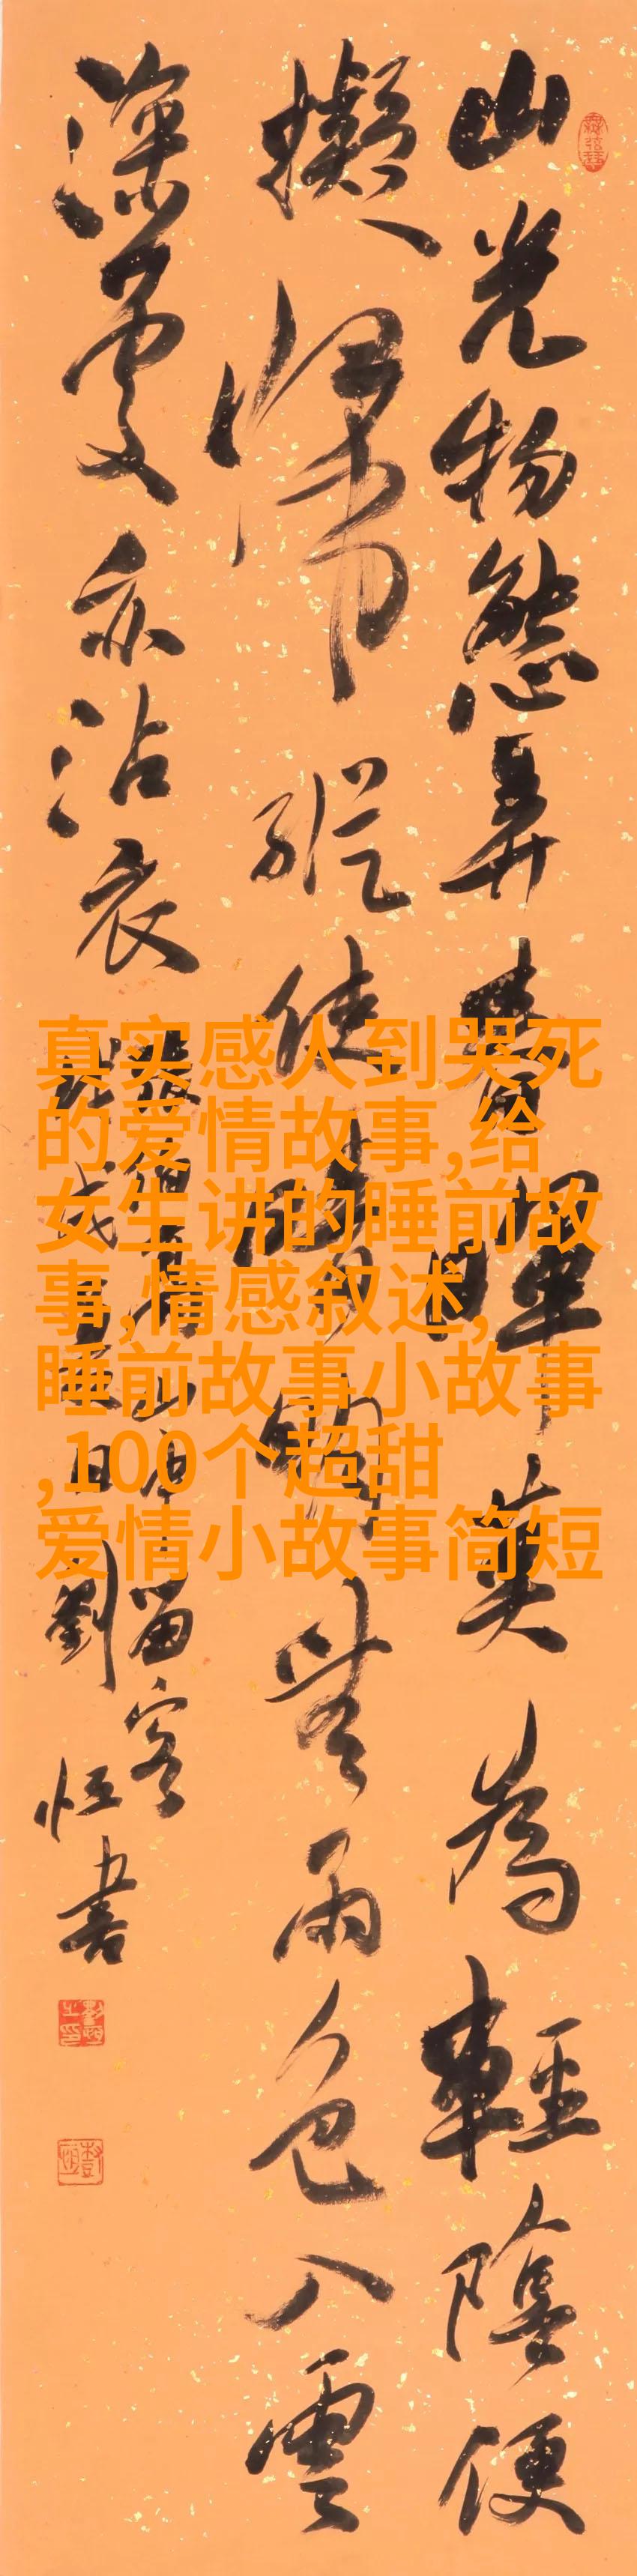 山光物態弄春暉莫為輕陰便
擬歸縱使晴明無雨色入雲
深處亦沾衣
山中留客
劉恒書
真实感人到哭死
的爱情故事,给
女生讲的睡前故
事,情感叙述,
睡前故事小故事
,100个超甜
爱情小故事简短